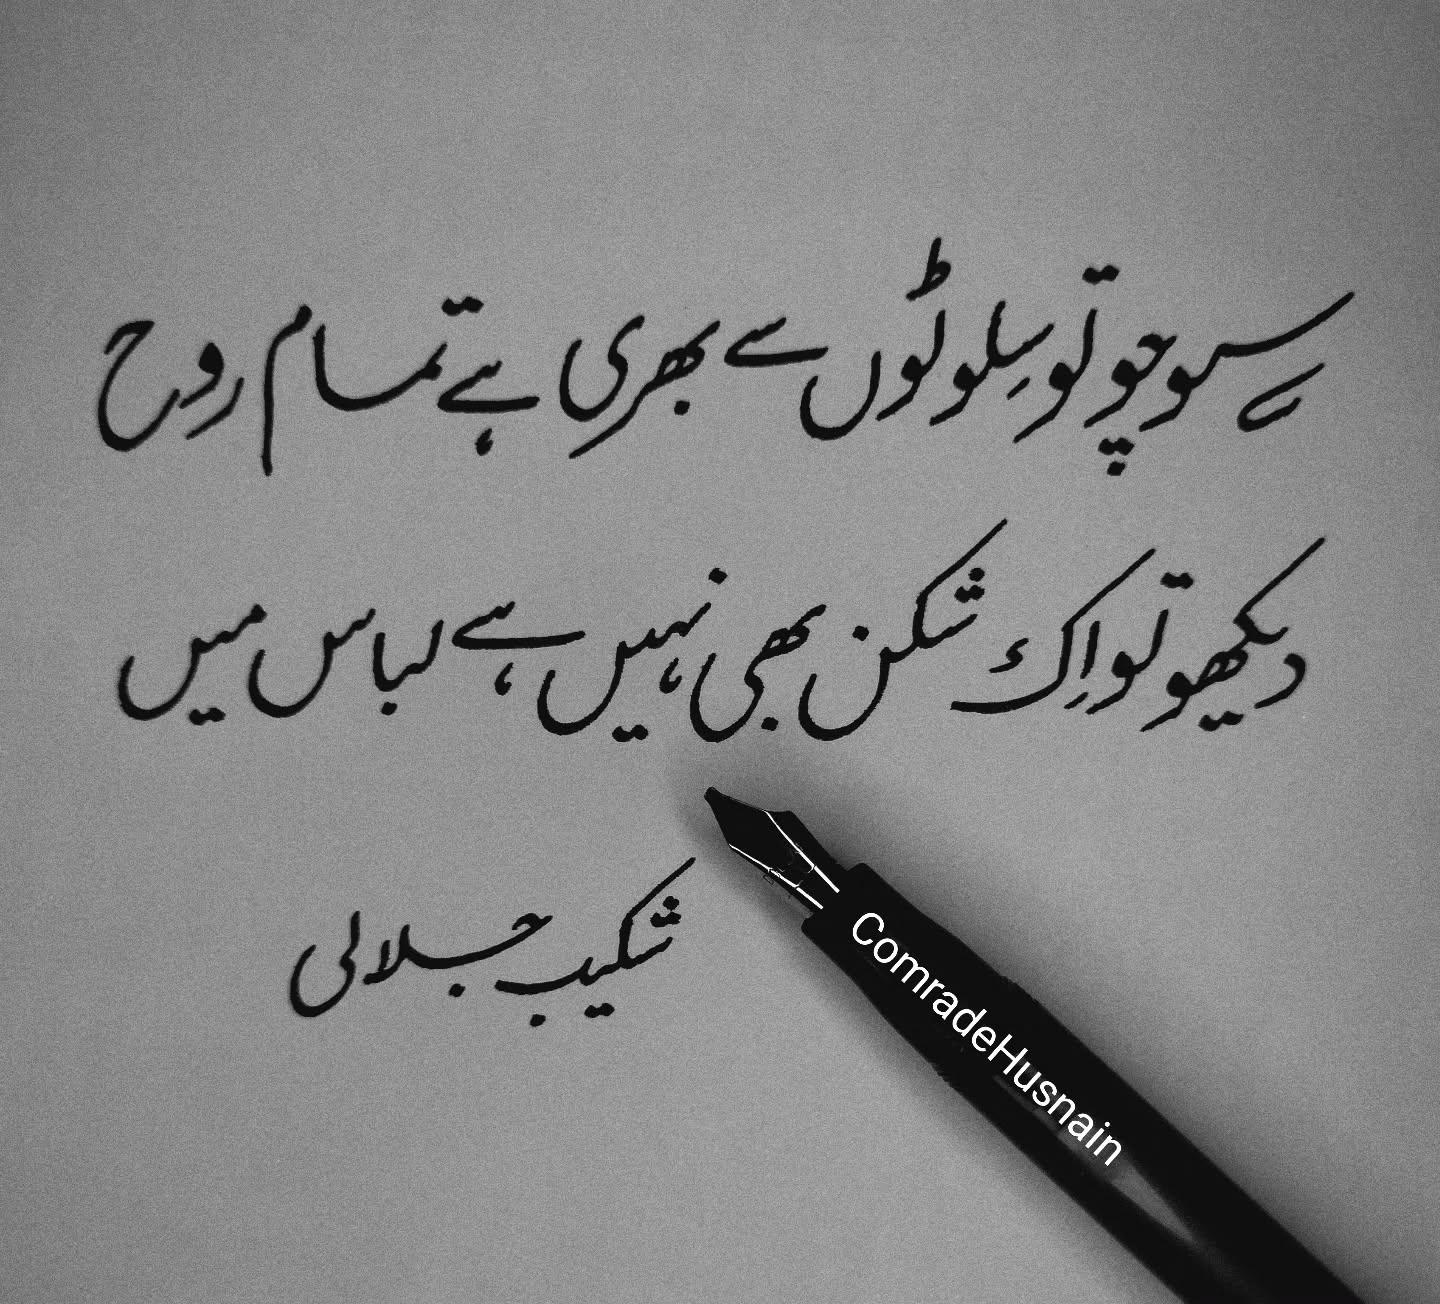 سوچو تو سِلوٹوں سے بھری ہے تمام روح
دیکھو تو اِک شکن بھی نہیں ہے لباس میں
شکیب جلالی
ComradeHusnain